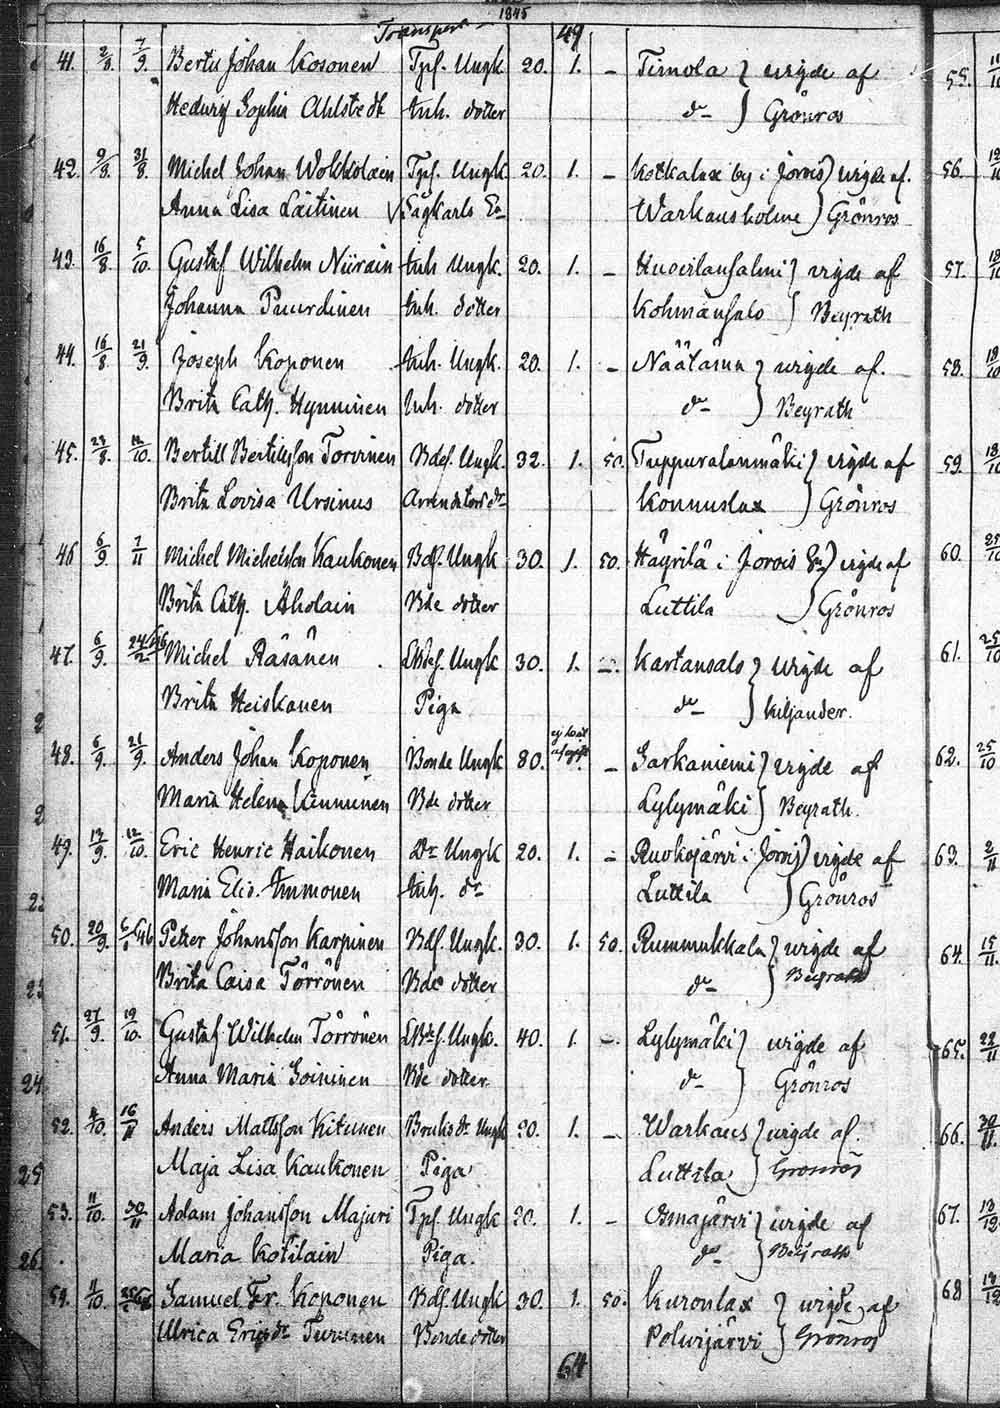 1845
Transport 49
41. 2/8. 7/9. Bertil Johan Kosonen Tpf. Ungk. 20. 1. – Timola } wigde af
Hedwig Sophia Ahlstedt Inh. dotter do } Grönros
42. 9/8. 31/8. Michel Johan Tpf. Ungk. 20. 1. – Kotkalax by i Jorois } wigde af.
Anna Lisa Laitinen Sågkarls Warkausholme } Grönros
43. 16/8. 5/10. Gustaf Wilhelm Niirain Inh. Ungk. 20. 1. – } wigde af
Johanna Puurdinen Inh. dotter } Beyrath
44. 16/8. 21/9. Joseph Koponen Inh. Ungk. 20. 1. – Näätänn } wigde af.
Brita Cath. Hynninen Inh. dotter do } Beyrath
45. 23/8. 12/10. Bertill Bertilsson Torvinen Bdef. Ungk. 32. 1. 50. Tuppuralanmäki } wigde af
Brita Lovisa Ursinus Arrendators dr Konnuslax } Grönros
46 6/9. 7/11 Michel Michelsson Kaukonen Bdf. Ungk 30. 1. 50. Häyrilä i Jorois } wigde af
Brita Cath. Aholain Bde dotter Luttila } Grönros
47. 6/9. 24/2 46 Michel Räsänen Ungk 30. 1. – Kartansalo } wigde af
Brita Heiskanen Piga do } Kiljander.
48. 6/9. 21/9. Anders Johan Koponen Bonde Ungk 80. – Sarkaniemi } wigde af
Maria Helena Kinnunen Bde dotter Lylymäki } Beyrath.
49. 13/9. 12/10. Eric Henric Haikonen Dr Ungk 20. 1. – Ruokojärvi i Jorois } wigde af
Maria Elis. Immonen Inh. dr Luttila } Grönros
50. 20/9. 6/1 46 Petter Johansson Karpinen Bdf. Ungk. 30. 1. 50. Rummukkala } wigde af
Brita Caisa Törrönen Bde dotter do } Beyrath
51. 27/9. 19/10. Gustaf Wilhelm Törrönen Ungk. 40. 1. –. Lylymäki } wigde af
Anna Maria Soininen Bde dotter do } Grönros
52. 4/10. 16/11 Anders Mattsson Kitunen Bruks dr Ungk 20. 1. – Warkaus } wigde af.
Maja Lisa Kaukonen Piga Luttila } Grönros
53. 11/10. 30/11 Adam Johansson Majuri Tpf. Ungk 20. 1. – Osmajärvi } wigde af
Maria Kotilain Piga. do } Beyrath
54. 11/10. Samuel Fr. Koponen Bdf. Ungk 30. 1. 50. Kuronlax } wigde af
Ulrica Ericsdr Turunen Bonde dotter Polwijärvi } Grönros
64
55.
56.
57.
58.
59.
60.
61.
62.
63.
64.
65.
66.
67.
68
24
25
26